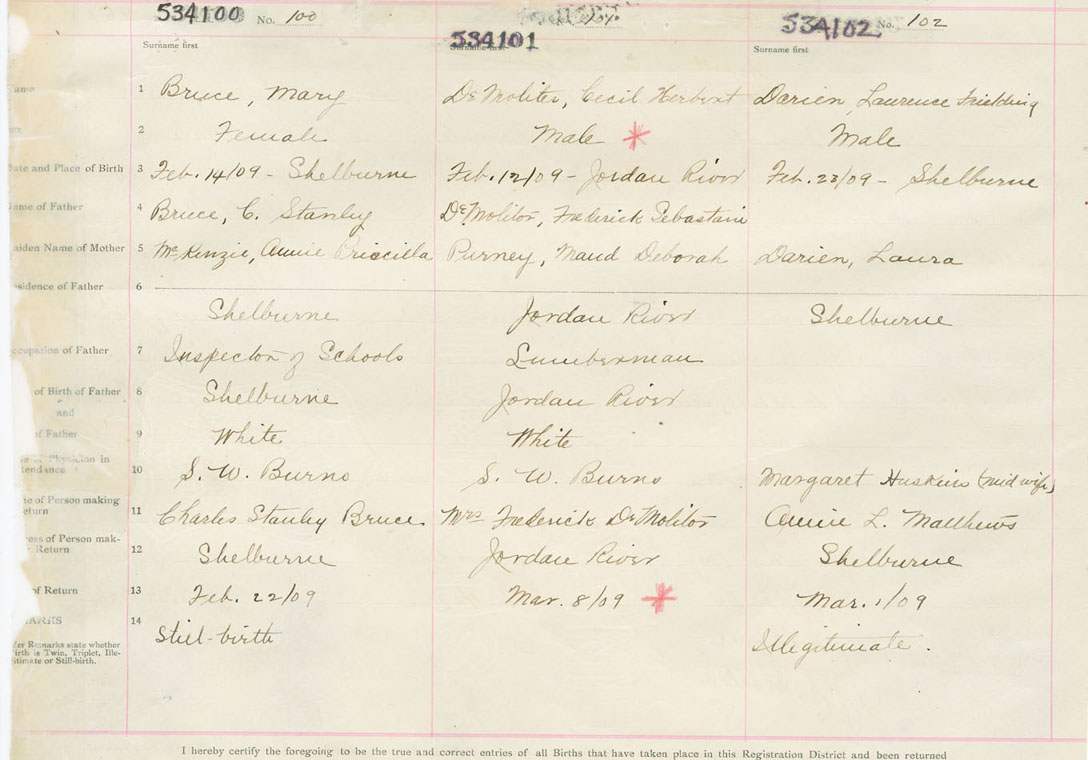 534100 No. 100
534101
534102 No. 102
Surname first
Surname first
Surname first
ame 1 Bruce, Mary De Moliter, Cecil Herbert Darien, Laurence Frielding
2 Female Male * Male
ate and Place of Birth 3 Feb. 14/09 - Shelburne Feb. 12/09 - Jordan River Feb. 23/09 - Shelburne
ame of Father 4 Bruce, C. Stanley De Molitor, Frederick Sebastain
aiden Name of Mother 5 McKenzie, Annie Priscilla Purney, Maud Deborah Darien, Laura
esidence of Father 6
Shelburne Jordan River Shelburne
ccupation of Father 7 Inspector of Schools Lumberman
of Birth of Father 8 Shelburne Jordan River
and
of Father 9 White White
of Physician in
tendance 10 S. W. Burns S. W. Burns Margaret Huskins (midwife)
e of Person making
eturn 11 Charles Stanley Bruce Mrs Frederick De Molitor Annie L. Matthews
ress of Person mak-
Return 12 Shelburne Jordan River Shelburne
of Return 13 Feb. 22/09 Mar. 8/09 * Mar. 1/09
ARKS 14 Still-birth Illegitimate.
der Remarks state whether
irth is Twin, Triplet, Ille-
itimate or Still-birth.
I hereby certify the foregoing to be the true and correct entries of all Births that have taken place in this Registration District and been returned